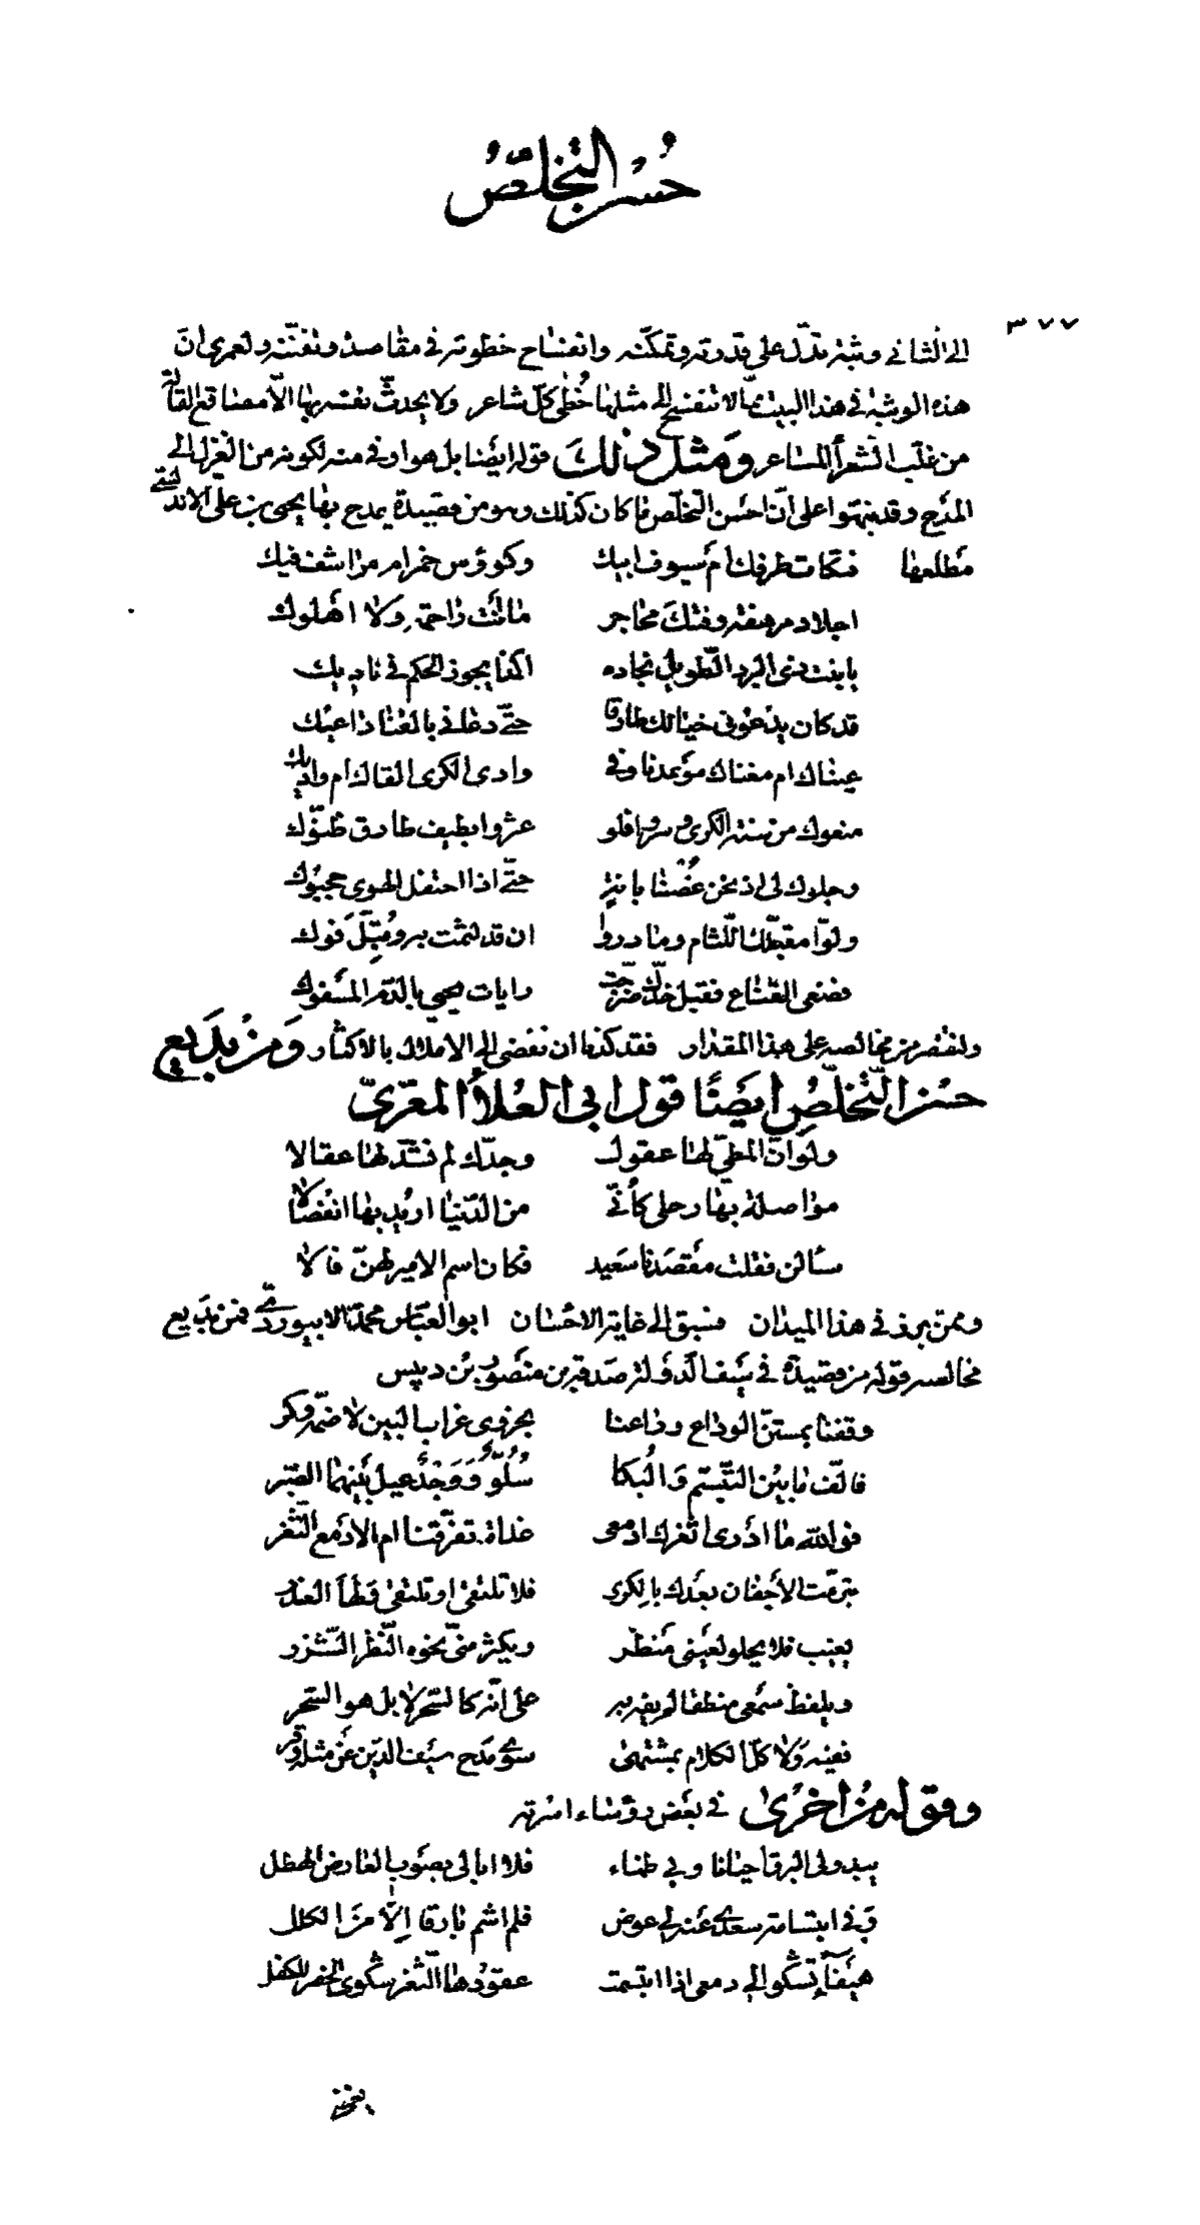 حُسْنُ التَّخَلُّصُ
٣٧٧
الى الثانى وثبة تدلّ على قدرته وتمكّنه وانفساح خطوته فى مقاصده وتفنّنه ولعمرى انّ
هذه الوثبة فى هذا البيت ممّا لا تنفسح الى مثلها خُطى كلّ شاعر ولا يحدثّ نفسه بها الّا مصاقع القالة
من غلب الشعرأ المشاعر وَمثل ذلكَ قوله ايضا بل هو اوفى منه لكونه من الغزل الى
المدح وقد نبهّوا على انّ احسن التخلّص ما كان كذلك وهو من قصيدة يمدح بها يحيى بن علىّ الاندلسىّ
مطلعها فتكات طرفك أم سيوف ابيك وكوؤس خمر ام مراشف فيك
اجلاد مرهفة وفتك محاجر ما انت راحمة ولا اهلوك
يا بنت ذى البرد الطويل نجاده اكذا يجوز الحكم فى ناديك
قد كان يدعونى خيالك طارقا حتّى دعانى بالقنا داعيك
عيناك ام مغناك موعدنا وفى وادى الكرى القاك ام واديك
منعوك من سنة الكرى وسروا فلو عثروا بطيف طارق ظنّوك
وجلوك لى اذ نحن غُصْنا بانة حتّى اذا احتفل الهوى حجبوك
ولوّا مقبّلك اللّثام وما دروا ان قد لثمت به وقُبِّلَ فوك
فضعى القناع فقبل خدّك ضرّجت رايات يحيى بالدّم المسفوك
ولنقتصر من مخالصه على هذا المقدار فقد كدنا ان نفضى الى الاملال بالاكثار وَمنْ بَديع
حسْن التّخلّصِ ايضًا قول ابى العُلأ المعرّىّ
ولو انّ المطىّ لها عقول وجدّك لم نشدّ لها عقالا
مواصلة بها رحلى كأنّى من الدّنيا اريد بها انفصالا
سألن فقلت مقصدنا سعيد فكان اسم الامير لهنّ فالا
وممن برز فى هذا الميدان فسبق الى غاية الاحسان ابو العباس محمد الابيوردىّ فمن بديع
مخالصه قوله من قصيدة فى سيف الدّولة صدقة بن منصور بْن دبيس
وقفنا بمستنّ الوداع وراعنا بحزوى غراب البين لا ضمّه وكر
فالّف ما بين التبسّم وَالْبكا سُلُوٌّ وَوَجْدٌ عيل بينهما الصّبر
فوالله ما ادرى اثغرك ادمعى غداة تفرّقنا ام الادمع الثّغر
تبرّمت الاجفان بعدك بالكرى فلا تلتقى او تلتقى
يغيب فلا يحلو لعينى منظر ويكثر منّى نحوه النّظر الشّزر
ويلفظ سمعى منطقا لم يفه به على انّه كالسّحر لا بل هو السّحر
نعيه وَلا كلّ الكلام بمشتهى سوى مدح سيف الدّين عن مثله وقر
وقوله منْ اخرى فى بعض رؤساء اسرته
يبدو لى البرق احيانا وبى ظماء فلا ابالى بصوب العارض الهطل
وَفى ابتسامة سعدى عنه لى عوض فلم اشم بارقا الّا من الكلل
هيفآء تشكو الى دمعى اذا ابتسمت عقودها الثّغر شكوى الخصر للكفل